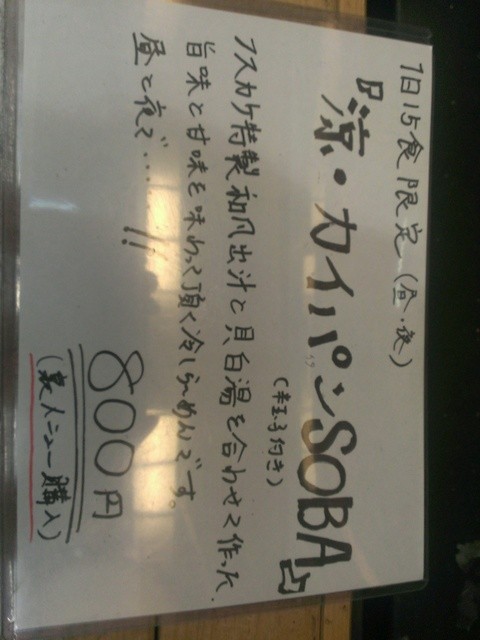 1日15食限定(昼・夜)
『涼・カイパンSOBA』
(辛玉子付き)
フスカケ特製和風出汁と貝白湯を合わせて作った、
旨味と甘味を味わって頂く冷しらーめんです。
昼と夜で....!!
800円
(裏メニュー購入)